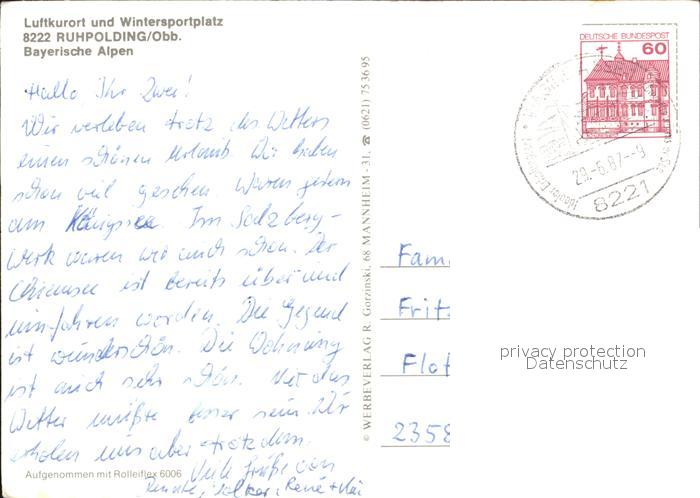 Luftkurort und Wintersportplatz
8222 RUHPOLDING/Obb.
Bayerische Alpen
Hallo Ihr Zwei!
Wir verleben trotz des Wetters
einen schönen Urlaub. Wir haben
schon viel gesehen. Waren gestern
am Königssee. Im Salzberg-
werk waren wir auch schon. Der
Chiemsee ist bereits über und
umfahren worden. Die Gegend
ist wunderschön. Die Wohnung
ist auch sehr schön. Nur das
Wetter müßte besser sein. Wir
erholen uns aber trotzdem.
Viele Grüße von
Renate, Volker, René +
Aufgenommen mit Rolleiflex 6006
© WERBEVERLAG R. Gorzinski, 68 MANNHEIM - 31, ☎ (0621) 75 36 95
DEUTSCHE BUNDESPOST
60
29.-6.87--9
8221
Fam
Frit
Flot
2358
privacy protection
Datenschutz